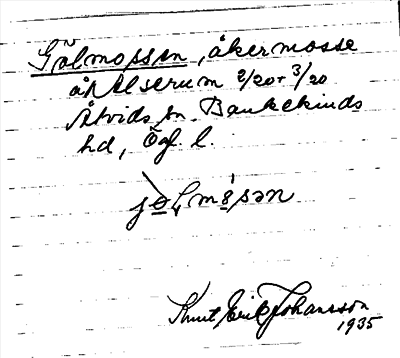 Gölmossen, åkermosse
å Adelserum 2/20 + 3/20
Åtvids sn Bankekinds
hd, Ög. l.
jø̀ḷmósən
Knut Erik Johansson
1935